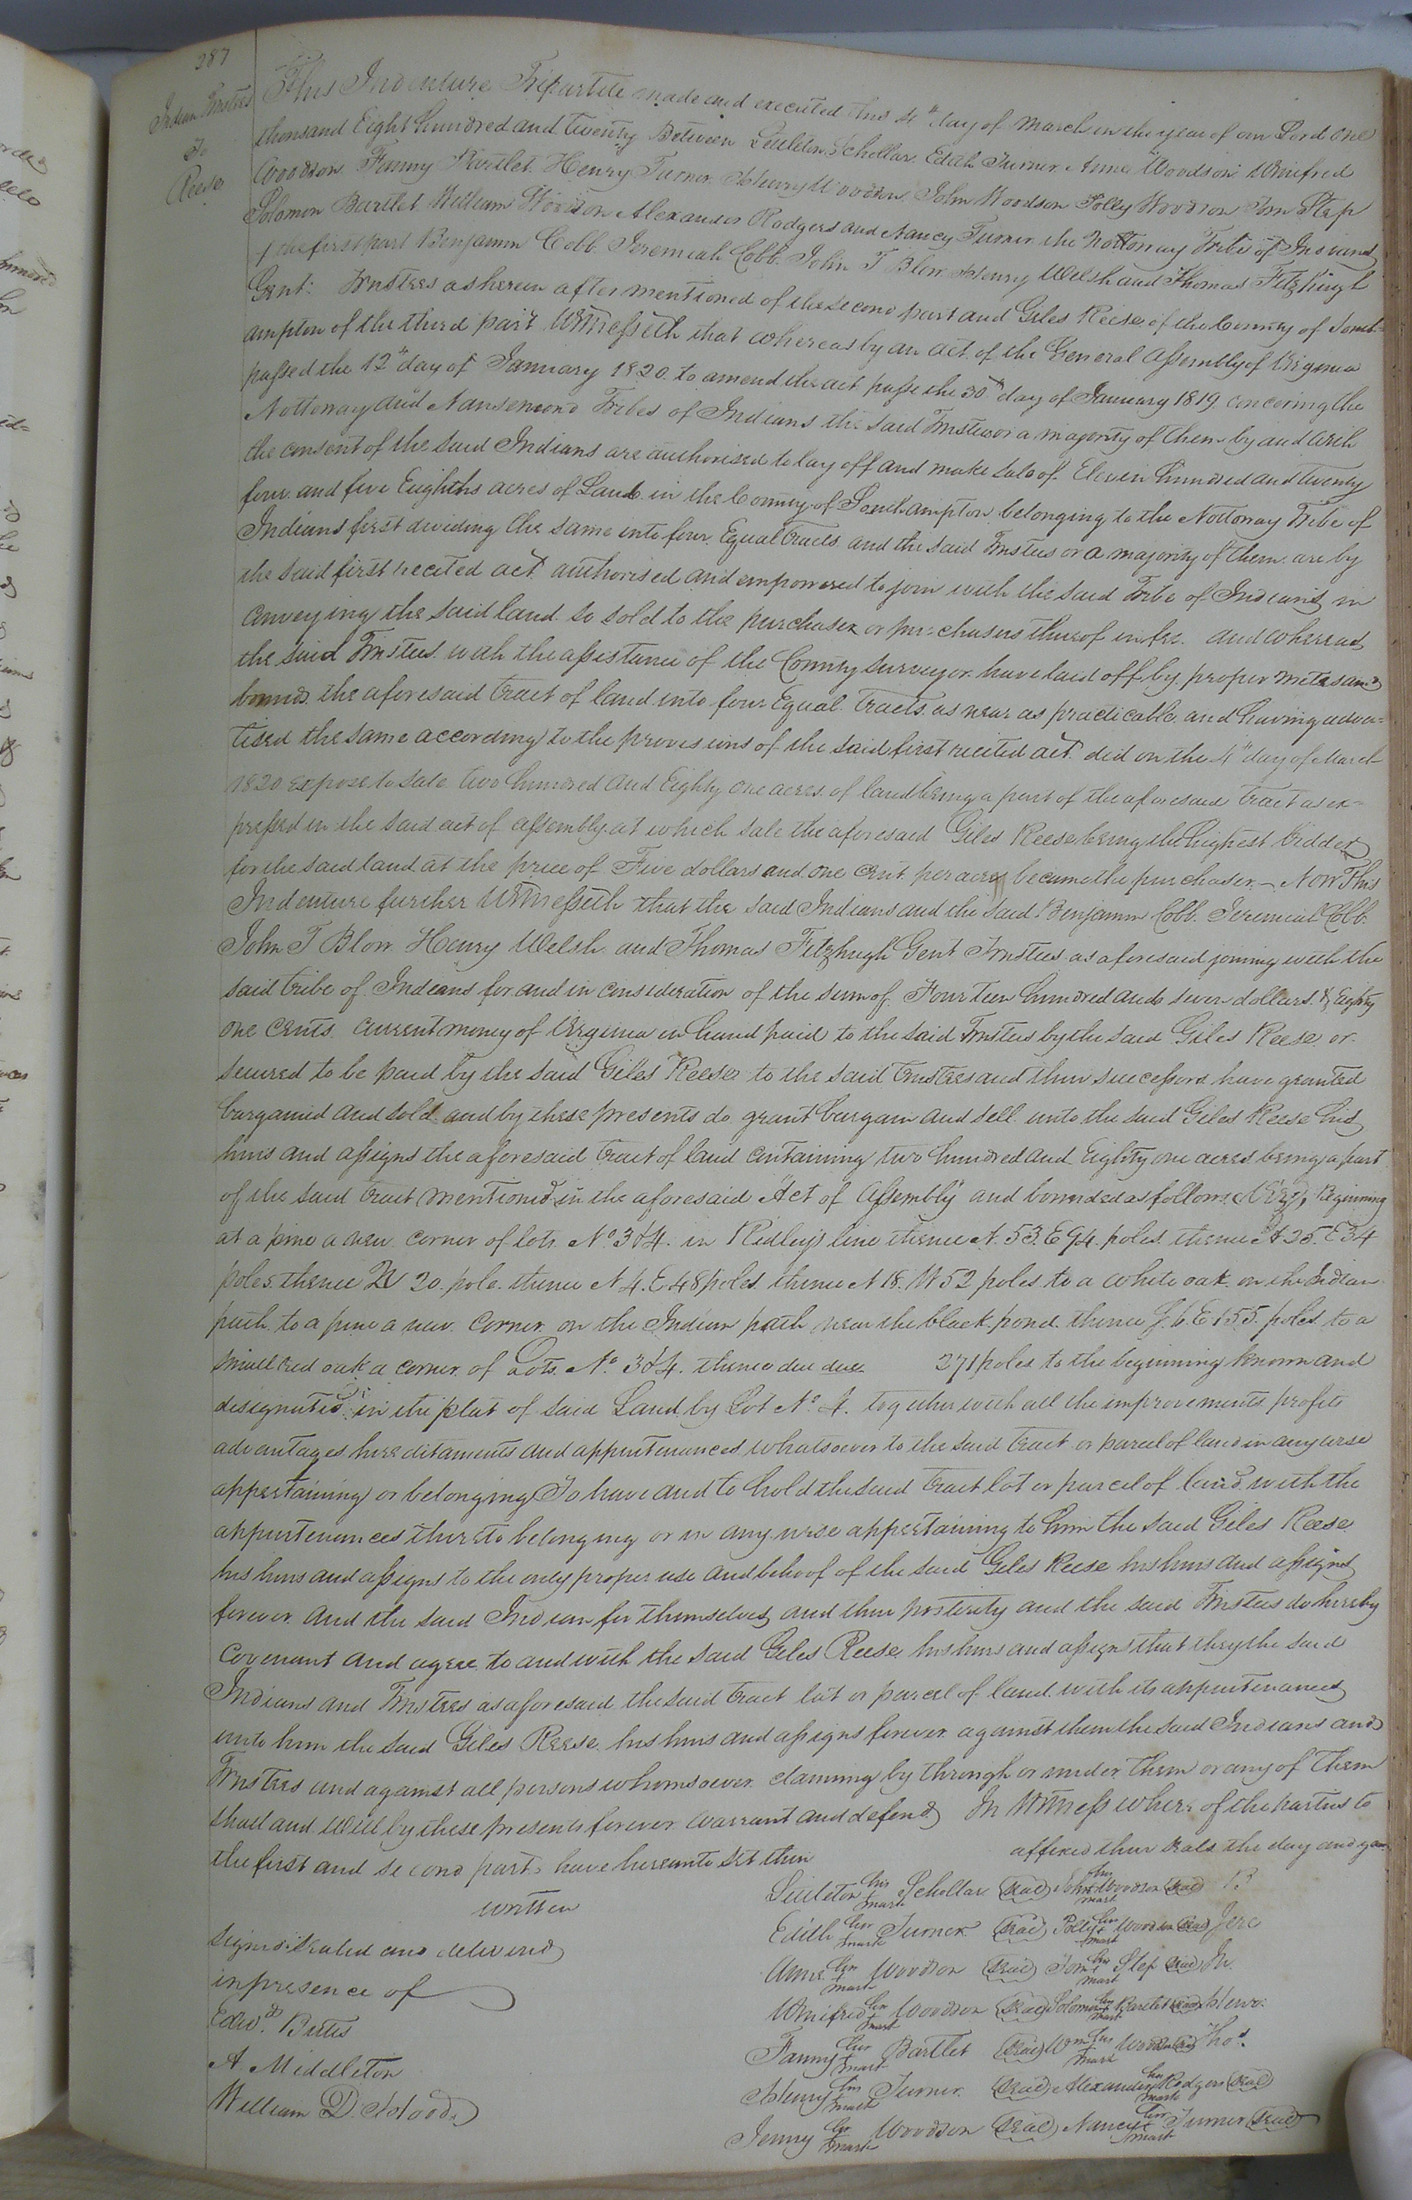 387
Indian Trustees
To
Reese
This Indenture Tripartite made and executed this 4th day of March in the year of our Lord one
thousand Eight hundred and twenty Between Littleton Schollar Edith Turner Anne Woodson Winifred
Woodson Fanny Bartlet Henry Turner Woodson John Woodson Polly Woodson Tom Step
Solomon Bartlet William Woodson Alexander Rodgers and Nancy Turner the Nottoway Tribe of Indians
of the first part Benjamin Cobb Jeremiah Cobb John T Blow Henry Welsh and Thomas Fitzhugh
Gent: Trustees as herein after mentioned of the second part and Giles Reese of the County of South-
ampton of the third part Witnesseth that whereas by an act of the General Assembly of Virginia
passed the 12th day of January 1820 to amend the act passe the 30th day of January 1819 concering the
Nottoway and Nansemond Tribes of Indians the said Trustees or a majority of them by and with
the consent of the said Indians are authorised to lay off and make sale of Eleven hundred and twenty
four and five Eighths acres of Land in the County of Southampton belonging to the Nottoway Tribe of
Indians first dividing the same into four Equal tracts and the said Trustees or a majority of them are by
the said first recited act authorised and empowered to join with the said Tribe of Indians in
conveying the said land so sold to the purchaser or purchasers thereof in fee and whereas
the said Trustees with the assistance of the County surveyor have laid off by proper metes and
bounds the aforesaid tract of land into four Equal Tracts as near as practicable and having adver=
tised the same according to the provisions of the said first recited act did on the 4th day of March
1820 expose to sale two hundred and Eighty one acres of land being a part of the aforesaid tract as ex=
pressed in the said act of assembly at which sale the aforesaid Giles Reese being the highest bidder
for the said land at the price of Five dollars and one cent per acre became the purchaser. Now This
Indenture further Witnesseth that the said Indians and the said Benjamin Cobb Jeremiah Cobb
John T Blow Henry Welsh and Thomas Fitzhugh Gent Trustees as aforesaid joining with the
said tribe of Indians for and in consideration of the sum of Fourteen hundred and seven dollars & Eighty
one cents current money of Virginia in hand paid to the said Trustees by the said Giles Reese or
secured to be paid by the said Giles Reese to the said trustees and their successors have granted
bargained and sold and by these presents do grant bargain and sell unto the said Giles Reese his
heirs and assigns the aforesaid tract of land containing two hundred and Eighty one acres being a part
of the said tract mentioned in the aforesaid Act of Assembly and bounded as follows (Viz), Beginning
at a pine a new corner of lots No 3 & 4 in Ridley's line thence N. 53 E 94 poles thence 25. E 34
poles thence W 20 pole thence N 4. E 48 poles thence N 18. W 52 poles to a white oak on the Indian
path to a pine a new corner on the Indian path near the black pond thence S. 6. E 155 poles to a
small red oak a corner of Lots No 3 & 4. thence due due 271 poles to the beginning known and
designated in the plat of said Land by Lot No 4. together with all the improvements profits
advantages hereditaments and appurtenances whatsoever to the said tract or parcel of land in any wise
appertaining or belonging To have and to hold the said tract lot or parcel of land with the
appurtenances thereto belonging or in any wise appertaining to him the said Giles Reese
his heirs and assigns to the only proper use and behoof of the said Giles Reese his heirs and assigns
forever and the said Indian for themselves and their posterity and the said Trustees do hereby
covenant and agree to and with the said Giles Reese his heirs and assigns that they the said
Indians and Trustees as aforesaid the said tract lot or parcel of land with its appurtenances
unto him the said Giles Reese his heirs and assigns forever against them the said Indians and
Trustees and against all persons whomsoever claiming by through or under them or any of them
shall and will by these presents forever warrant and defend In Witness where of the parties to
the first and second parts have hereunto set their affixed their seals the day and year
written
signed sealed and delivered
in presence of
Edwd. Butts
A Middleton
William D. Hood
Littleton his + mark Schollar (seal) John his + mark Woodson (seal) B
Edith her + mark Turner (seal) Polly her + mark Woodson (seal) Jere
Anne her + mark Woodson (seal) Tom his + mark Step (seal) Jn.
Winifred her + mark Woodson (seal) Solomon his + mark Bartlet (seal) Henr:
Fanny her + mark Bartlet (seal) Wm his + mark Woodson (seal) Thos.
Henry his + mark Turner (seal) Alexander his + mark Rodgers (seal)
Jenny her + mark Woodson (seal) Nancy her + mark Turner (seal)